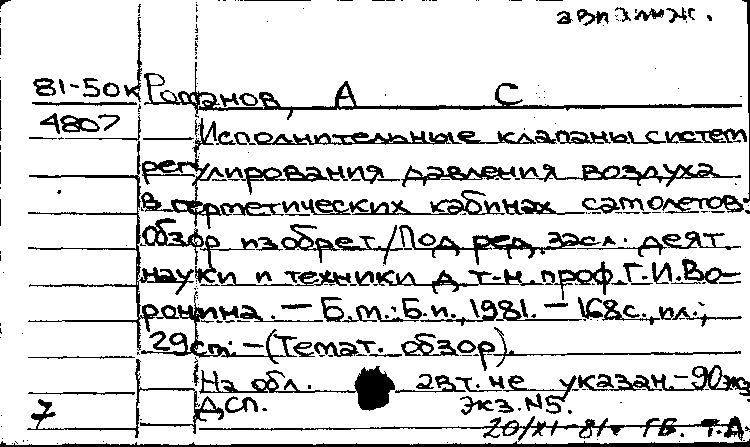 авпалиж.
81-50к Романов, А С
4807 Исполнительные клапаны систем
регулирования давления воздуха
в герметических кабинах самолетов:
Обзор изобрет./Под ред. засл. деят.
науки и техники д.т.н. проф. Г.И.Во-
ронина. — Б.м.: Б.и., 1981. — 168с., ил.;
29см. — (Темат. обзор).
На обл. авт. не указан. - 90 экз
7 ДСП. Экз. N5.
20/XI-81г ГБ. Т.А.